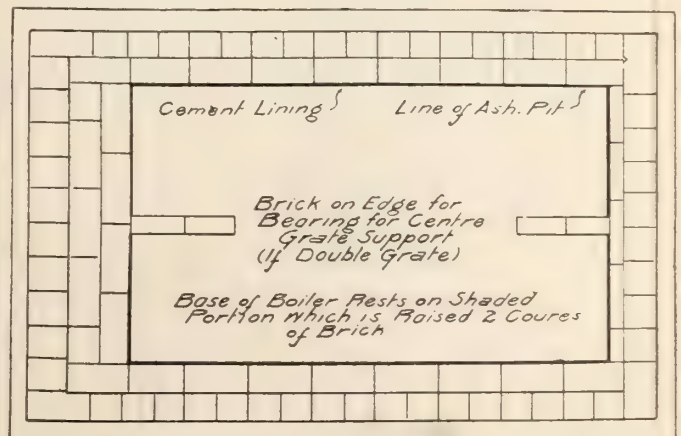 Cement Lining
Line of Ash. Pit
Brick on Edge for
Bearing for Centre
Grate Support
(If Double Grate)
Base of Boiler Rests on Shaded
Portion which is Raised 2 Coures
of Brick